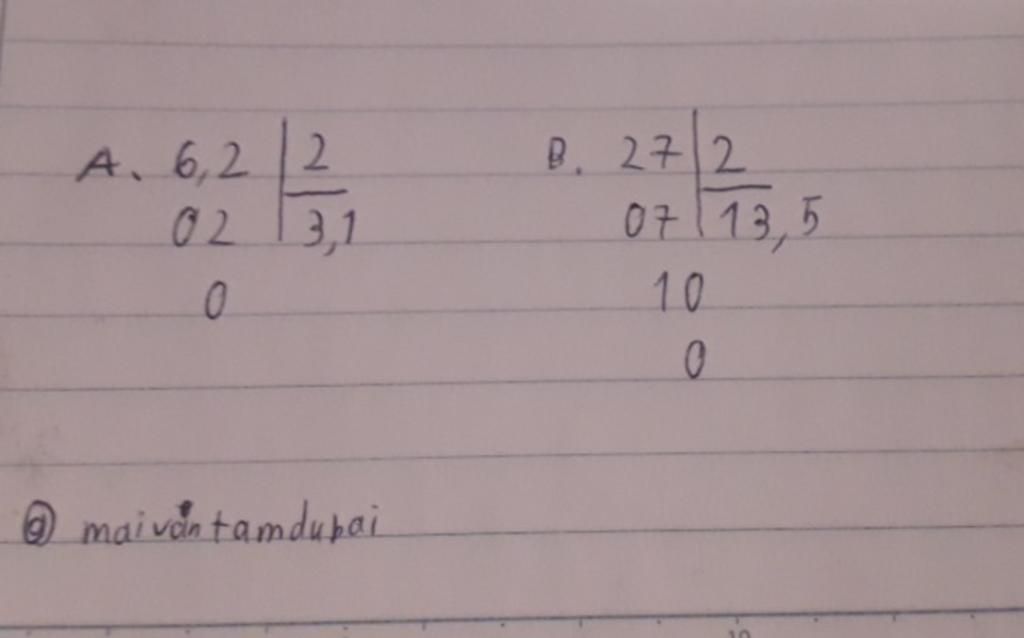 A. 6,2 | 2
02 | 3,1
0
B. 27 | 2
07 | 13,5
10
0
@ maivantamdubai